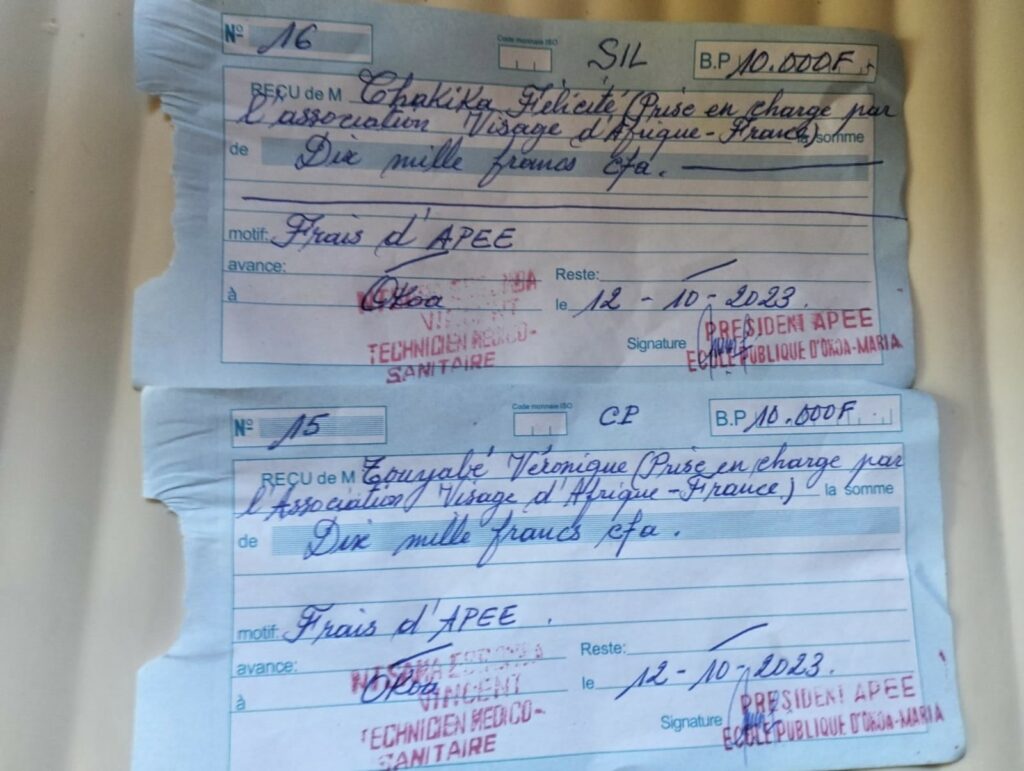 Nº 16 Code monnaie ISO SIL B.P 10.000F
REÇU de M Thakika Félicité (Prise en charge par
l'association Visage d'Afrique-France) la somme
de Dix mille francs cfa.
motif: Frais d'APEE
avance: Reste:
à Okoa le 12-10-2023.
VINCENT
TECHNICIEN MEDICO-
SANITAIRE
Signature PRESIDENT APEE
ECOLE PUBLIQUE D'OKOA-MARIA
Nº 15 Code monnaie ISO CP B.P 10.000F
REÇU de M Véronique (Prise en charge par
l'Association Visage d'Afrique-France) la somme
de Dix mille francs cfa.
motif: Frais d'APEE.
avance: Reste:
à Okoa le 12-10-2023.
VINCENT
TECHNICIEN MEDICO-
SANITAIRE
Signature PRESIDENT APEE
ECOLE PUBLIQUE D'OKOA-MARIA